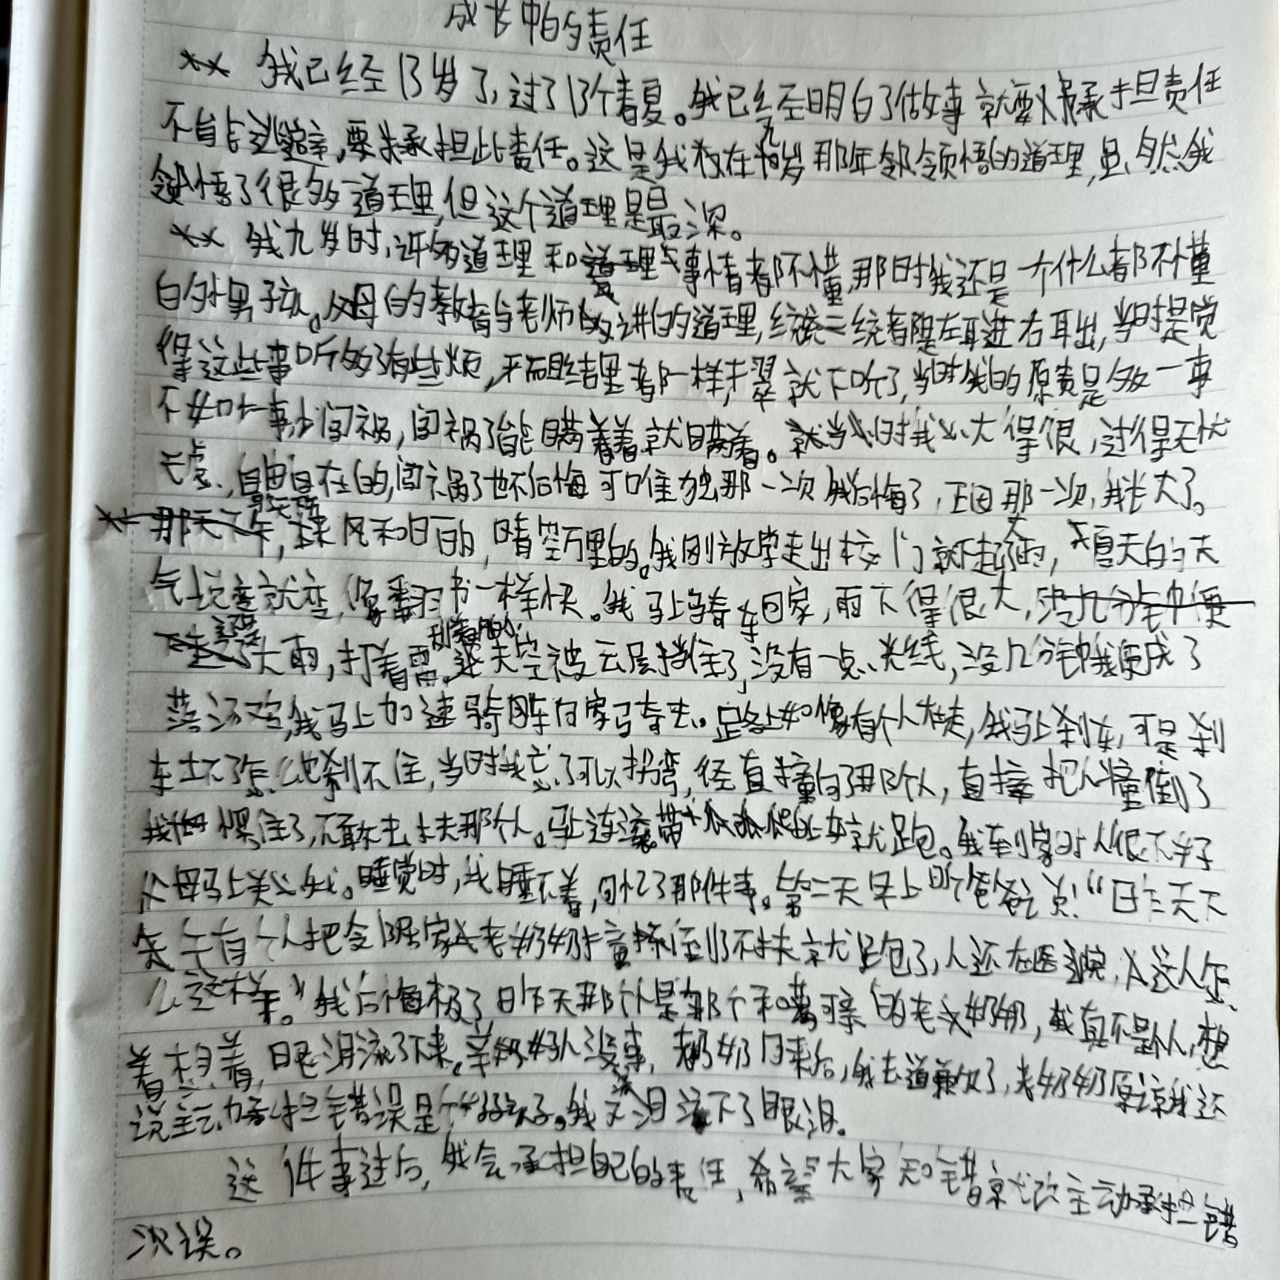 成长中的责任
我已经13岁了,过了13个春夏。我已经明白了做事就要承担责任
不能逃避,要承担此责任。这是我在九岁那年领悟的道理,虽然我
领悟了很多道理,但这个道理是最深。
我九岁时,许多道理和事情都不懂,那时我还是一个什么都不懂
的小男孩。父母的教育与老师的讲的道理,统统都是左耳进右耳出,当时是觉
得这些事听多了有些烦,而且结果都一样,就不听了,当时我的原责是多一事
不如少一事,少闯祸,闯祸了能瞒着就瞒着。当时我心大得很,过得无忧
无虑,自由自在的,闯祸了也不后悔可唯独那一次我后悔了,正因那一次,我长大了。
那天下午,风和日丽,晴空万里的。我刚放学走出校门就下起雨,夏天的天
气说变就变,像翻书一样快。我马上骑车回家,雨下得很大,
大雨,打着雷,天空被云层挡住了,没有一点光线,没几分钟我便成了
落汤鸡,我马上加速骑车向家马奔去。路上如像有个人在走,我马上刹车,可是刹
车坏了怎么也刹不住,当时我忘了可以拐弯,径直撞向了那个人,直接把人撞倒了
我愣住了,不敢去扶那个人。马上连滚带爬上车就跑。我到家时人很不好
父母马上关心我。睡觉时,我睡不着,回忆了那件事。第二天早上听爸爸说:“昨天下
午有个人把令隔家老奶奶撞倒了不扶就跑了,人还在医院,这人怎
么这样。”我后悔极了昨天那个人是那个和蔼可亲的老奶奶,我真不是人,想
着想着,眼泪流了下来。幸好奶奶人没事,老奶奶回来后,我去道歉了,老奶奶原谅我还
说主动承担错误是个好孩子。我又流下了眼泪。
这件事过后,我会承担自己的责任,希望大家知错就改主动承担错
误。